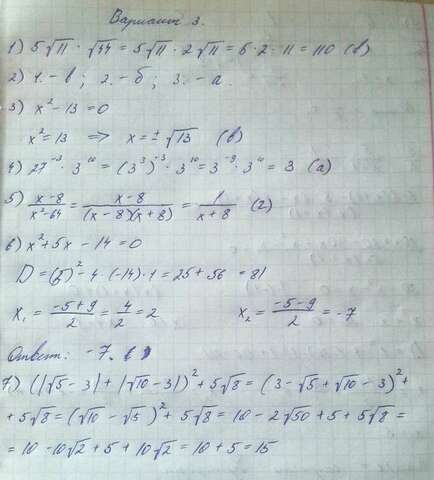 Вариант 3.
1) 5√11 · √44 = 5√11 · 2√11 = 5 · 2 · 11 = 110 (в)
2) 1. – в ; 2. – б ; 3. – а.
3) x² – 13 = 0
x² = 13 ⟹ x = ± √13 (в)
4) 27⁻³ · 3¹⁰ = (3³)⁻³ · 3¹⁰ = 3⁻⁹ · 3¹⁰ = 3 (а)
5) (x–8)/(x²–64) = (x–8)/((x–8)(x+8)) = 1/(x+8) (г)
6) x² + 5x – 14 = 0
D = (5)² – 4 · (–14) · 1 = 25 + 56 = 81
x₁ = (–5+9)/2 = 4/2 = 2 x₂ = (–5–9)/2 = –7
Ответ: –7.
7) (|√5 – 3| + |√10 – 3|)² + 5√8 = (3 – √5 + √10 – 3)² +
+ 5√8 = (√10 – √5)² + 5√8 = 10 – 2√50 + 5 + 5√8 =
= 10 – 10√2 + 5 + 10√2 = 10 + 5 = 15